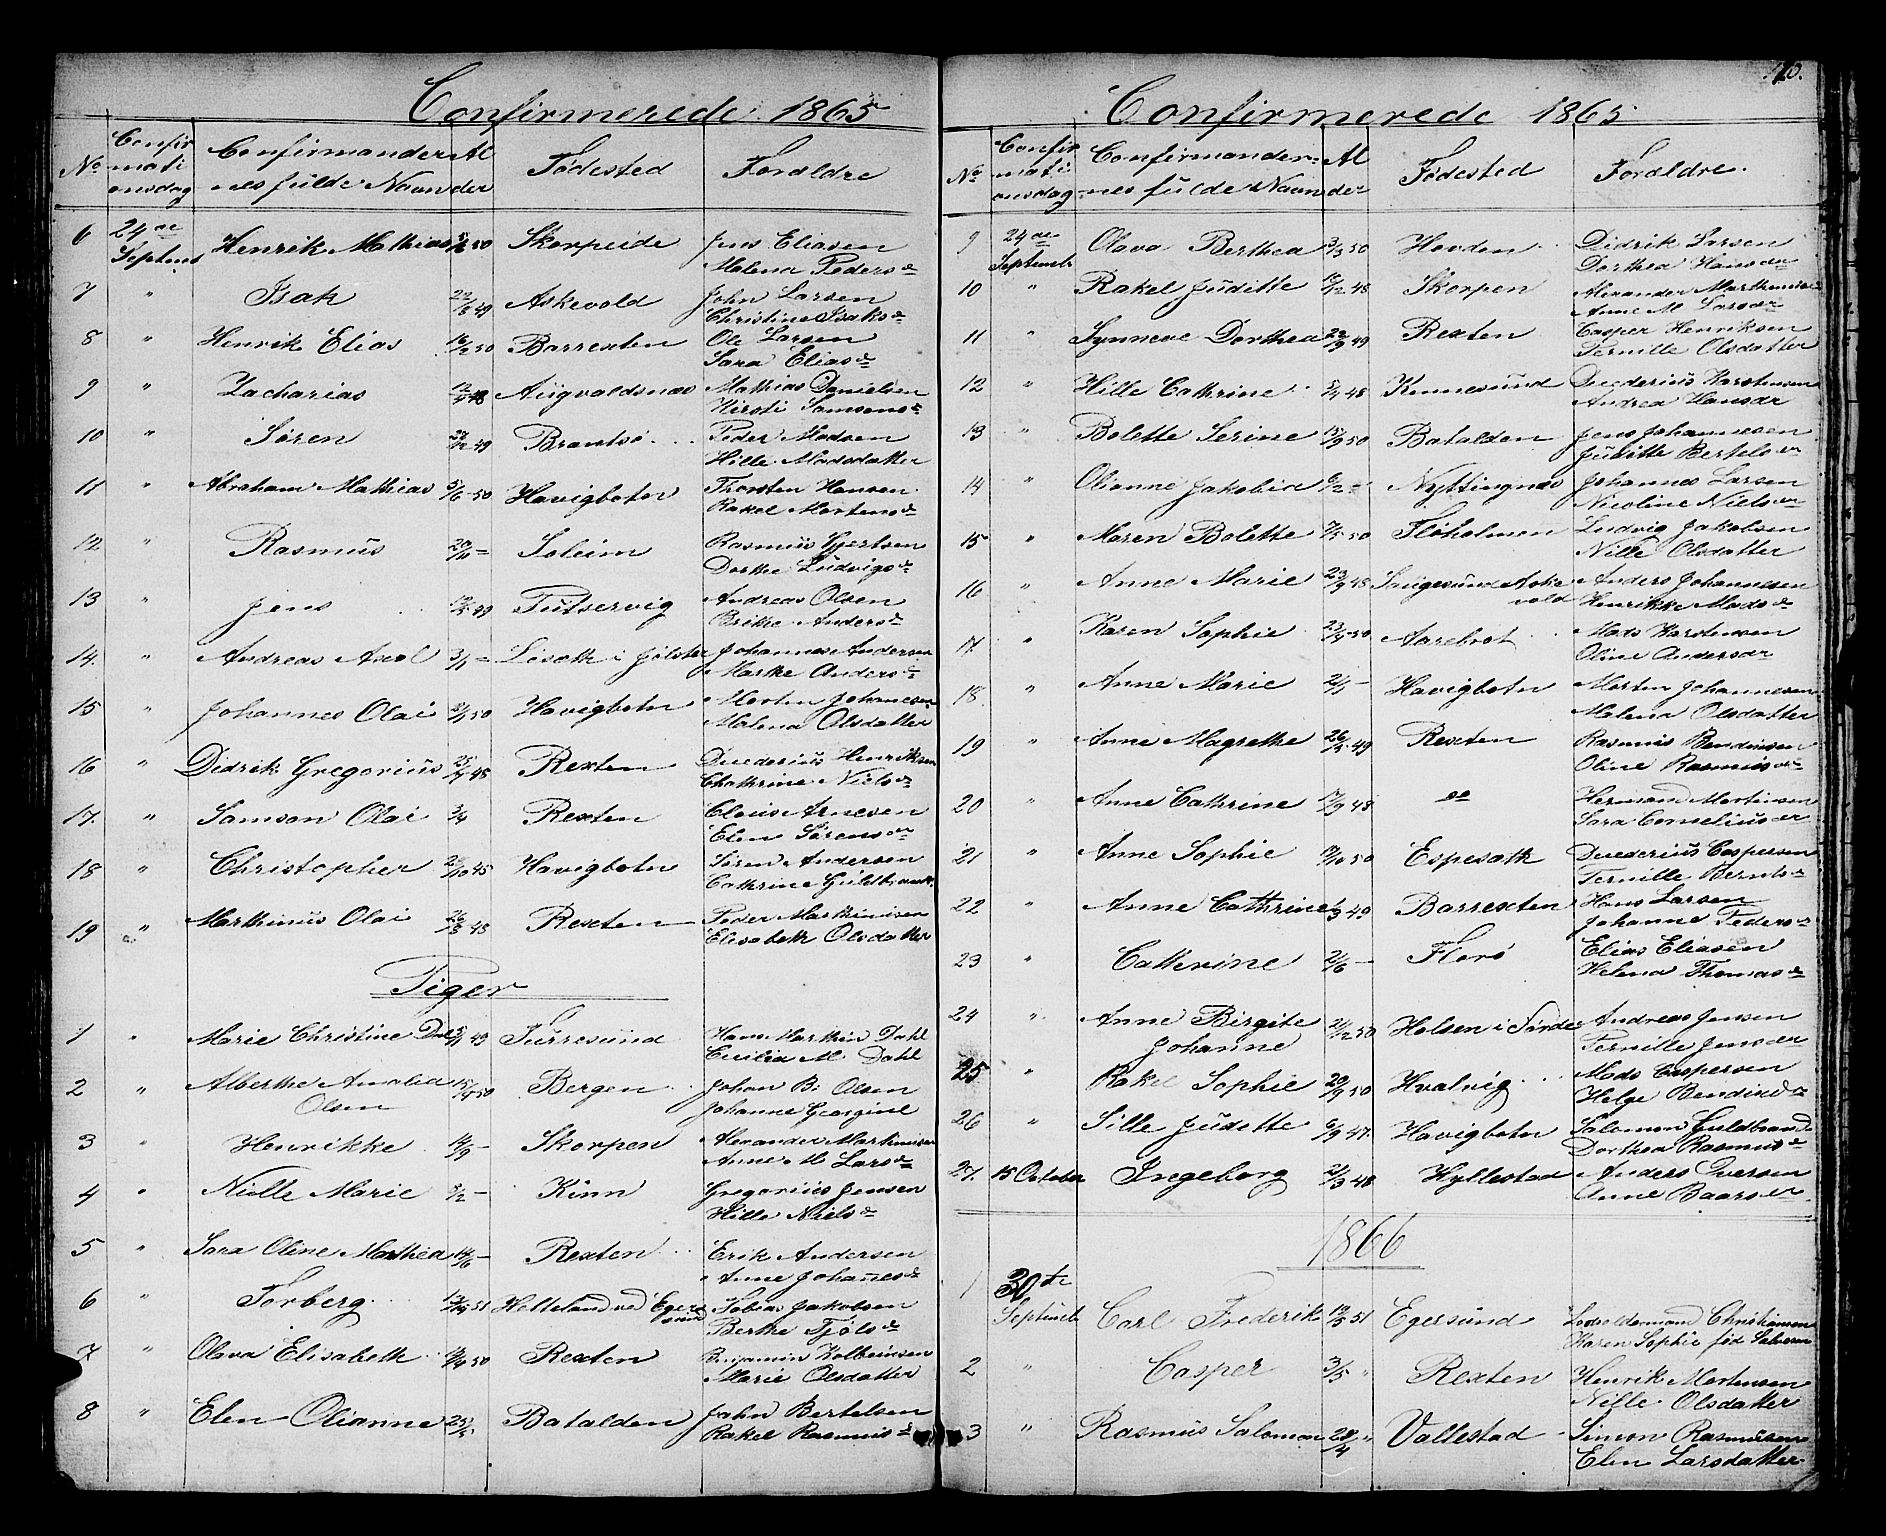 Confirmerede 1865
No
Confir
mati
onsdag
Confirmander
nes fulde Navn
Al
der
Fødested
Forældre
6 24de Septemb Henrik Mathias 50 Skorpeide Jens Eliasen
Malena Peders d
7 " Isak 49 Askevold John Larsen
Christine Isaks d
8 " Henrik Elias 50 Barrexten Ole Larsen
Sara Elias d
9 " Zacharias 48 Augvaldsnæs Mathias Danielsen
Kirsti Samsons d
10 " Søren 49 Brantsø Peder Madsen
Hille Madsdatter
11 " Abraham Mathias 5/6 50 Havigbotn Thorsten Hansen
Rakel Mortens d
12 " Rasmus Soleim Rasmus Gjertsen
Dorthe Ludvigs d
13 " Jens 49 Tutservig Andreas Olsen
Brithe Anders d
14. " Andreas Axel 3/1 = i Jølster Johannes Andersen
Marthe Anders d
15 " Johannes Olai 50 Havigbotn Morten Johannesen
Malena Olsdatter
16 " Didrik Gregorius 48 Rexten Duederius Henriksen
Chathrine Niels d
17. " Samson Olai 3/4 Rexten Claus Arnesen
Elen Sørens dr
18 " Christopher 45 Havigbotn Søren Andersen
Cathrine Guldbrands
19 " Marthinus Olai 48 Rexten Peder Marthinusen
Elisabeth Olsdatter
Piger
1 " Marie Christine Dahl 49 Furresund Hans Marthin Dahl
Cecilia M. Dahl
2 " Alberthe Amalia 50 Bergen Johan B. Olsen
Olsen Johanne Georgine
3 " Henrikke Skorpen Alexander Marthinusen
Anne M Lars d
4 " Nielle Marie Kinn Gregorius Jensen
Hille Niels d
5 " Sara Oline Marthea 14/6 - Rexten Erik Andersen
Anne Johannes d
6 " Torberg 51 Helleland ved Eger
sund Tobias Jakobsen
Berthe Tjøls d
7 " Olava Elisabeth 50 Rexten Benjamin Kolbeinsen
Marie Olsdatter
8 " Elen Olianne Batalden John Bertelsen
Rakel Rasmus d
120.
Confirmerede 1865
No
Confir
mati
onsdag
Confirmander
nes fulde Navn
Al
der
Fødested
Forældre.
9 24de Septemb Olava Berthea 3/3 50 Hovden Didrik Larsen
Dorthea Hans dr
10 " Rakel Juditte 48 Skorpen Alexander Marthinius
Anne M Lars dr
11 " Synneve Dorthea 49 Rexten Casper Henriksen
Pernille Olsdatter
12 " Hille Cathrine 48 Kinnesund Duederius Karstensen
Andrea Hans dr
13 " Bolette Serine 50 Batalden Jens Johannesen
Juditte Bertels dr
14 " Olianne Jakobia Nyttingnæs Johannes Larsen
Nicoline Niels dr
15 " Maren Bolette 50 Floholmen Ludvig Jakobsen
Nille Olsdatter
16 " Anne Marie 23/9 48 Saugesund Aske
vold Anders Johannesen
Henrikke Mads d
17 " Karen Sophie 50 Aarebrot Mads Karstensen
Oline Anders dr
18 " Anne Marie Havigbotn Morten Johannesen
Malena Olsdatter
19 " Anne Magrethe 49 Rexten Rasmus Bendixsen
Oline Rasmus dr
20 " Anne Cathrine 48 do Hermand Mortensen
Sara Cornelius dr
21 " Anne Sophie 50 Espesæth Duederius Caspersen
Pernille Bernts d
22 " Anne Cathrine 49 Barrexten Hans Larsen
Johanne Peders d
23 " Catherine Florø Elias Eliasen
Helena Thomas d
24 " Anne Birgite
Johanne 50 Holsen i Førde Andreas Jensen
Pernille Jens dr
25 " Rakel Sophie 20/9 50 Hvalvig Mads Caspersen
Helge Bendix d
26 " Sille Judette 47. Havigbotn Salomon Guldbrands
Dorthea Rasmus d
27. 15 October Ingeborg 48 Hyllestad Anders Iversen
Anne Baars dr
1866
1 30te
Septemb Carl Frederik 51 Egersund Lodsoldermand Christiansen
Karen Sophie fød
2 " Casper 3/5 " Rexten Henrik Mortensen
Nille Olsdatter
3 " Rasmus Salomon 28/4 " Vallestad Simon Rasmusen
Elen Larsdatter